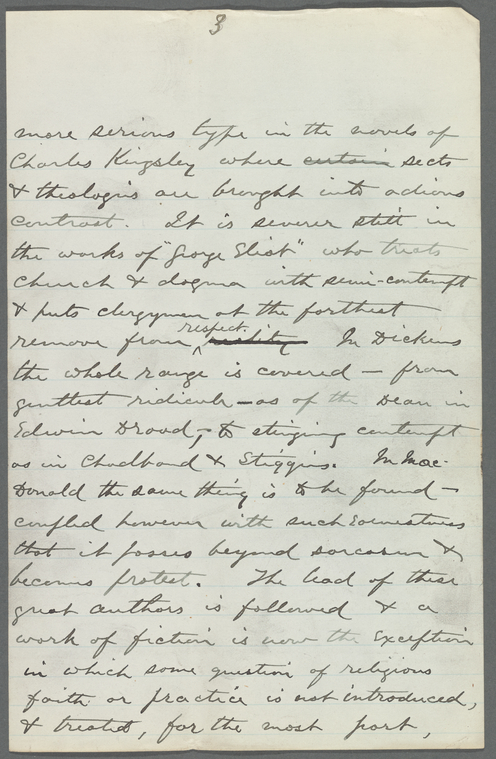 3
more serious type in the novels of
Charles Kingsley where certain sects
& theologies are brought into odious
contrast. It is severer still in
the works of "George Eliot" who treats
Church & dogma with semi-contempt
& puts clergymen at the farthest
remove from respect. In Dickens
the whole range is covered — from
gentlest ridicule — as of the Dean in
Edwin Drood, — to stinging contempt
as in Chadband & Stiggins. In Mac-
Donald the same thing is to be found —
coupled however with such earnestness
that it passes beyond sarcasm &
becomes protest. The lead of these
great authors is followed & a
work of fiction is now the exception
in which some question of religious
faith or practice is not introduced,
& treated, for the most part,